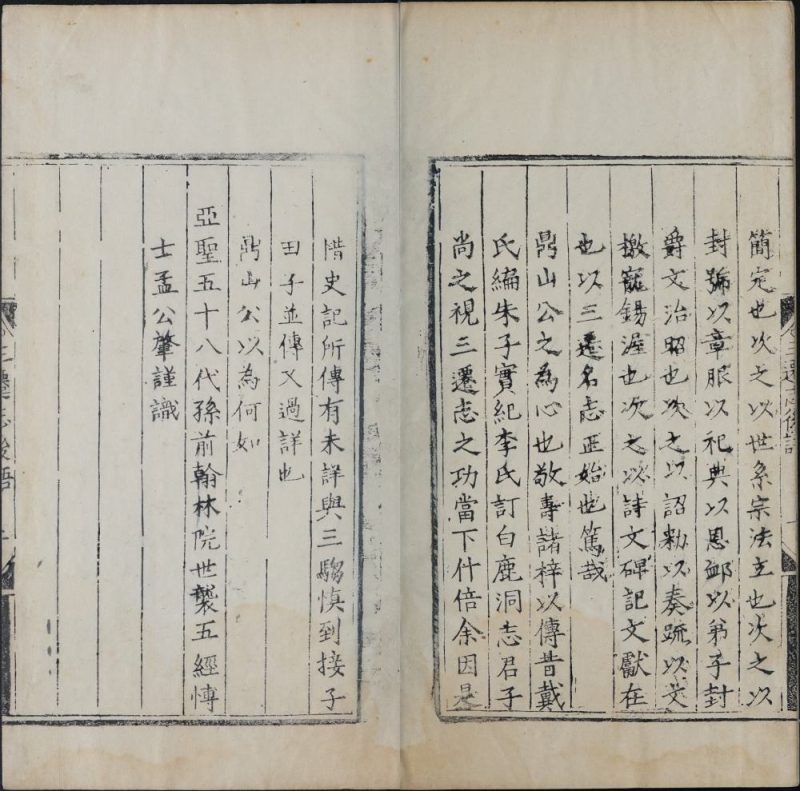 簡定也次之以世系宗法立也次之以
封號以章服以祀典以恩卹以弟子封
爵文治昭也次之以詔勑以奏疏以文
檄寵錫渥也次之以詩文碑記文獻在
也以三遷名志正始也篤哉
鼎山公之為心也敬壽諸梓以傳昔戴
氏編朱子實紀李氏訂白鹿洞志君子
尚之視三遷志之功當下什倍余因是
惜史記所傳有未詳與三騶慎到接子
田子並傳又過詳也
鼎山公以為何如
亞聖五十八代孫前翰林院世襲五經愽
士孟公肇謹識
三遷志後語